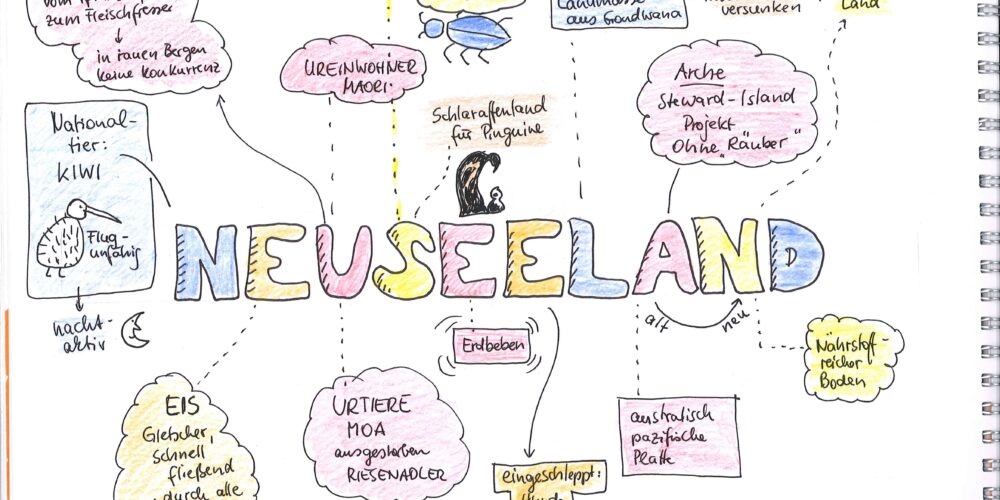 zum Fleischfresser
in rauen Bergen
keine Konkurrenz
Landmasse
aus Gondwana
versunken
Land
UREINWOHNER
MAORI
Schlaraffenland
für Pinguine
Arche
Steward-Island
Projekt
Ohne "Räuber"
National-
tier:
KIWI
Flug-
unfähig
nacht-
aktiv
NEUSEELAND
alt
neu
Erdbeben
Nährstoff-
reicher
Boden
EIS
Gletscher,
schnell
fließend
durch alle
URTIERE
MOA
ausgestorben
RIESENADLER
australisch
pazifische
Platte
eingeschleppt: